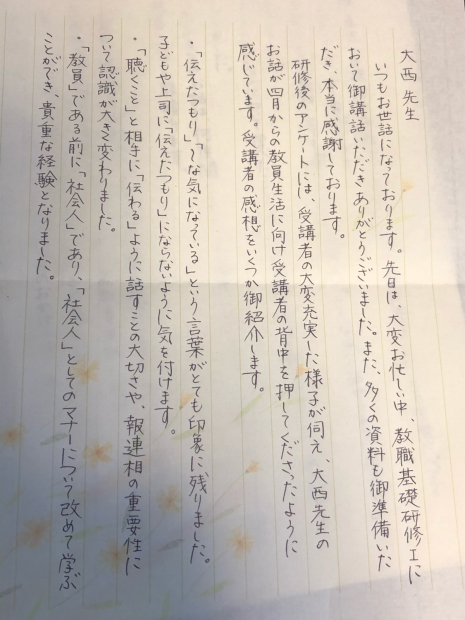 大西先生
いつもお世話になっております。先日は、大変お忙しい中、教職基礎研修Ⅰに
おいて御講話いただきありがとうございました。また、多くの資料も御準備いた
だき、本当に感謝しております。
研修後のアンケートには、受講者の大変充実した様子が伺え、大西先生の
お話が四月からの教員生活に向け受講者の背中を押してくださったように
感じています。受講者の感想をいくつか御紹介します。
・「伝えたつもり」「～な気になっている」という言葉がとても印象に残りました。
子どもや上司に「伝えたつもり」にならないように気を付けます。
・「聴くこと」と相手に「伝わる」ように話すことの大切さや、報連相の重要性に
ついて認識が大きく変わりました。
・「教員」である前に「社会人」であり、「社会人」としてのマナーについて改めて学ぶ
ことができ、貴重な経験となりました。